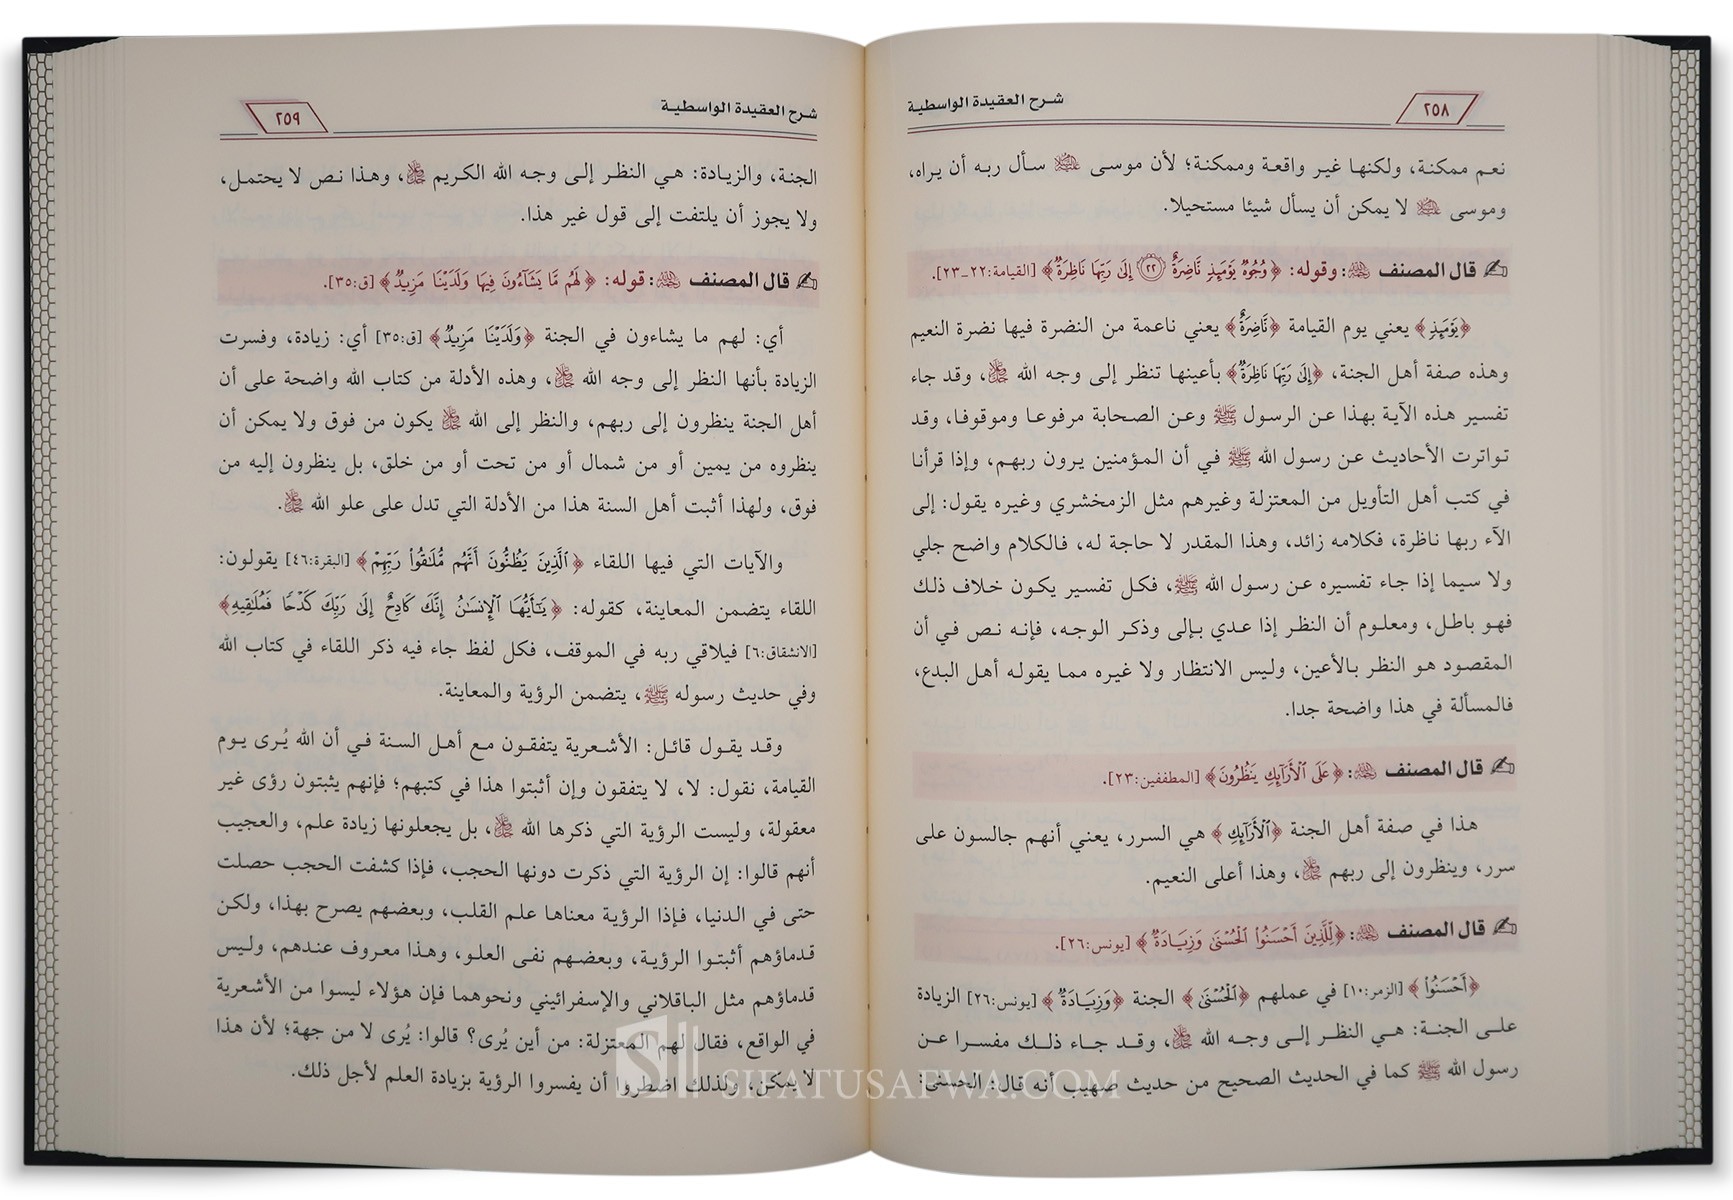 شرح العقيدة الواسطية
٢٥٨
نعم ممكنة، ولكنها غير واقعة وممكنة؛ لأن موسى عليه السلام سأل ربه أن يراه،
وموسى عليه السلام لا يمكن أن يسأل شيئا مستحيلا.
قال المصنف رحمه الله: وقوله: ﴿وُجُوهٌ يَوْمَئِذٍ نَّاضِرَةٌ ٢٢ إِلَىٰ رَبِّهَا نَاظِرَةٌ﴾ [القيامة:٢٢-٢٣].
﴿يَوْمَئِذٍ﴾ يعني يوم القيامة ﴿نَّاضِرَةٌ﴾ يعني ناعمة من النضرة فيها نضرة النعيم
وهذه صفة أهل الجنة، ﴿إِلَىٰ رَبِّهَا نَاظِرَةٌ﴾ بأعينها تنظر إلى وجه الله ﷻ، وقد جاء
تفسير هذه الآية بهذا عن الرسول ﷺ وعن الصحابة مرفوعا وموقوفا، وقد
تواترت الأحاديث عن رسول الله ﷺ في أن المؤمنين يرون ربهم، وإذا قرأنا
في كتب أهل التأويل من المعتزلة وغيرهم مثل الزمخشري وغيره يقول: إلى
الآء ربها ناظرة، فكلامه زائد، وهذا المقدر لا حاجة له، فالكلام واضح جلي
ولا سيما إذا جاء تفسيره عن رسول الله ﷺ، فكل تفسير يكون خلاف ذلك
فهو باطل، ومعلوم أن النظر إذا عدي بإلى وذكر الوجه، فإنه نص في أن
المقصود هو النظر بالأعين، وليس الانتظار ولا غيره مما يقوله أهل البدع،
فالمسألة في هذا واضحة جدا.
قال المصنف رحمه الله: ﴿عَلَى ٱلْأَرَآئِكِ يَنظُرُونَ﴾ [المطففين:٢٣].
هذا في صفة أهل الجنة ﴿ٱلْأَرَآئِكِ﴾ هي السرر، يعني أنهم جالسون على
سرر، وينظرون إلى ربهم ﷻ، وهذا أعلى النعيم.
قال المصنف رحمه الله: ﴿لِّلَّذِينَ أَحْسَنُوا۟ ٱلْحُسْنَىٰ وَزِيَادَةٌ﴾ [يونس:٢٦].
﴿أَحْسَنُوا۟﴾ [الزمر:١٠] في عملهم ﴿ٱلْحُسْنَىٰ﴾ الجنة ﴿وَزِيَادَةٌ﴾ [يونس:٢٦] الزيادة
على الجنة: هي النظر إلى وجه الله ﷻ، وقد جاء ذلك مفسرا عن
رسول الله ﷺ كما في الحديث الصحيح من حديث صهيب أنه قال: الحسنى:
شرح العقيدة الواسطية
٢٥٩
الجنة، والزيادة: هي النظر إلى وجه الله الكريم ﷻ، وهذا نص لا يحتمل،
ولا يجوز أن يلتفت إلى قول غير هذا.
قال المصنف رحمه الله: قوله: ﴿لَهُم مَّا يَشَآءُونَ فِيهَا وَلَدَيْنَا مَزِيدٌ﴾ [ق:٣٥].
أي: لهم ما يشاءون في الجنة ﴿وَلَدَيْنَا مَزِيدٌ﴾ [ق:٣٥] أي: زيادة، وفسرت
الزيادة بأنها النظر إلى وجه الله ﷻ، وهذه الأدلة من كتاب الله واضحة على أن
أهل الجنة ينظرون إلى ربهم، والنظر إلى الله ﷻ يكون من فوق ولا يمكن أن
ينظروه من يمين أو من شمال أو من تحت أو من خلق، بل ينظرون إليه من
فوق، ولهذا أثبت أهل السنة هذا من الأدلة التي تدل على علو الله ﷻ.
والآيات التي فيها اللقاء ﴿ٱلَّذِينَ يَظُنُّونَ أَنَّهُم مُّلَـٰقُوا۟ رَبِّهِمْ﴾ [البقرة:٤٦] يقولون:
اللقاء يتضمن المعاينة، كقوله: ﴿يَـٰٓأَيُّهَا ٱلْإِنسَـٰنُ إِنَّكَ كَادِحٌ إِلَىٰ رَبِّكَ كَدْحًا فَمُلَـٰقِيهِ﴾
[الانشقاق:٦] فيلاقي ربه في الموقف، فكل لفظ جاء فيه ذكر اللقاء في كتاب الله
وفي حديث رسوله ﷺ، يتضمن الرؤية والمعاينة.
وقد يقول قائل: الأشعرية يتفقون مع أهل السنة في أن الله يُرى يوم
القيامة، نقول: لا، لا يتفقون وإن أثبتوا هذا في كتبهم؛ فإنهم يثبتون رؤى غير
معقولة، وليست الرؤية التي ذكرها الله ﷻ، بل يجعلونها زيادة علم، والعجيب
أنهم قالوا: إن الرؤية التي ذكرت دونها الحجب، فإذا كشفت الحجب حصلت
حتى في الدنيا، فإذا الرؤية معناها علم القلب، وبعضهم يصرح بهذا، ولكن
قدماؤهم أثبتوا الرؤية، وبعضهم نفى العلو، وهذا معروف عندهم، وليس
قدماؤهم مثل الباقلاني والإسفرائيني ونحوهما فإن هؤلاء ليسوا من الأشعرية
في الواقع، فقال لهم المعتزلة: من أين يُرى؟ قالوا: يُرى لا من جهة؛ لأن هذا
لا يمكن، ولذلك اضطروا أن يفسروا الرؤية بزيادة العلم لأجل ذلك.
SIFATUSAFWA.COM